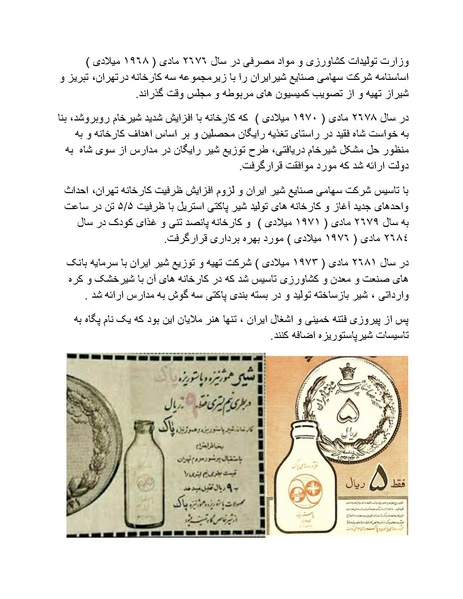 وزارت تولیدات کشاورزی و مواد مصرفی در سال ۲۶۷۶ مادی ( ۱۹۶۸ میلادی )
اساسنامه شرکت سهامی صنایع شیرایران را با زیرمجموعه سه کارخانه درتهران، تبریز و
شیراز تهیه و از تصویب کمیسیون های مربوطه و مجلس وقت گذراند.
در سال ۲۶۷۸ مادی ( ۱۹۷۰ میلادی ) که کارخانه با افزایش شدید شیرخام روبروشد، بنا
به خواست شاه فقید در راستای تغذیه رایگان محصلین و بر اساس اهداف کارخانه و به
منظور حل مشکل شیرخام دریافتی، طرح توزیع شیر رایگان در مدارس از سوی شاه به
دولت ارائه شد که مورد موافقت قرارگرفت.
با تاسیس شرکت سهامی صنایع شیر ایران و لزوم افزایش ظرفیت کارخانه تهران، احداث
واحدهای جدید آغاز و کارخانه های تولید شیر پاکتی استریل با ظرفیت ۵/۵ تن در ساعت
به سال ۲۶۷۹ مادی ( ۱۹۷۱ میلادی ) و کارخانه پانصد تنی و غذای کودک در سال
۲۶۸۴ مادی ( ۱۹۷۶ میلادی ) مورد بهره برداری قرارگرفت.
در سال ۲۶۸۱ مادی ( ۱۹۷۳ میلادی ) شرکت تهیه و توزیع شیر ایران با سرمایه بانک
های صنعت و معدن و کشاورزی تاسیس شد که در کارخانه های آن با شیرخشک و کره
وارداتی ، شیر بازساخته تولید و در بسته بندی پاکتی سه گوش به مدارس ارائه شد .
پس از پیروزی فتنه خمینی و اشغال ایران ، تنها هنر ملایان این بود که یک نام پگاه به
تاسیسات شیرپاستوریزه اضافه کنند.
شیر هموژنیزه و پاستوریزه پاک
در بطری نیم لیتری فقط ۹ ریال
کارخانه شیر پاستوریزه و هموژنیزه پاک
بخاطر
استقبال پرشور مردم تهران
قیمت بطری نیم لیتری را
به ۹ ریال تقلیل میدهد
محصولات پاستوریزه و هموژنیزه پاک
از شیر خالص گاو تهیه میشود
۵
ریال
فقط ۵ ریال